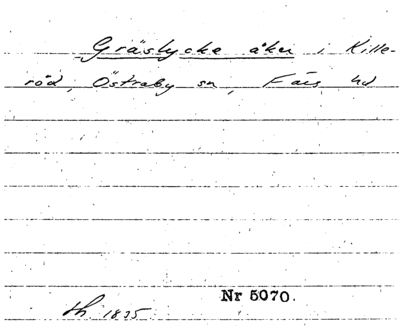 Gräslycke åker i Kille-
röd, Östraby sn, Färs hd
Nr 5070.
sk 1835